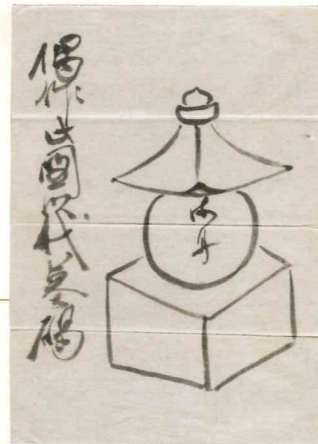 偶作此圖以代墓碣